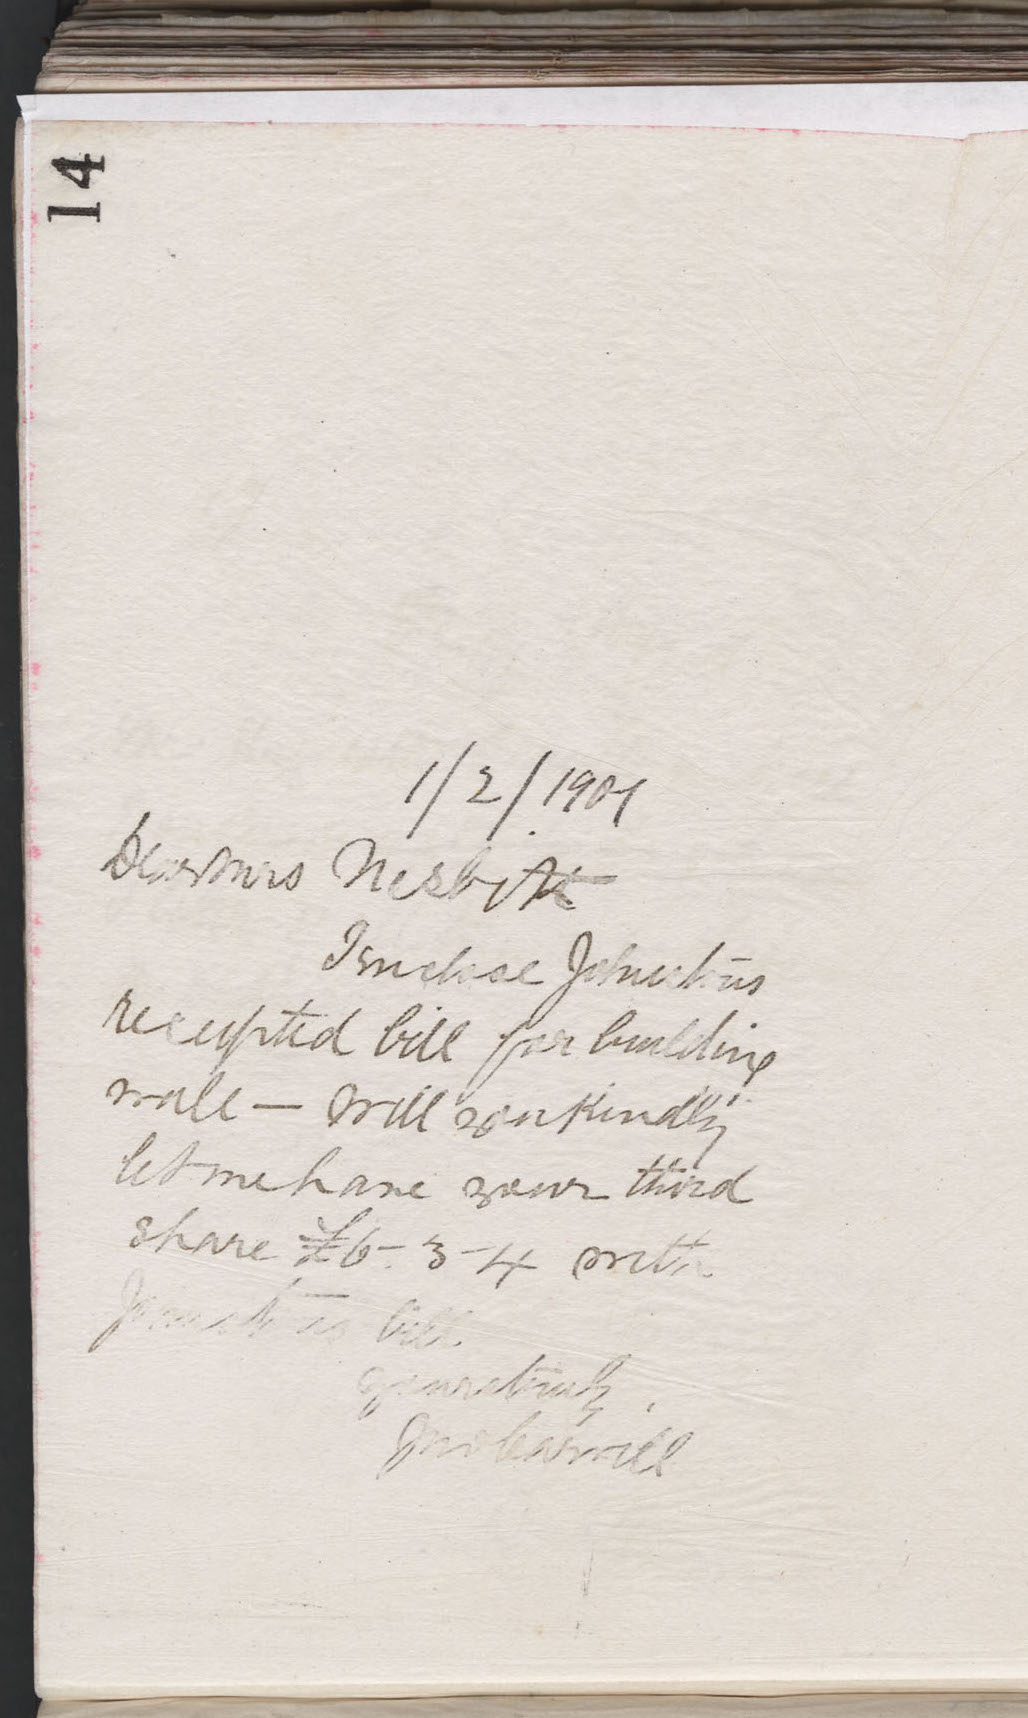 14
1/2/1907
Dear Mrs Nesbitt
I enclose Johnstons
receipted bill for building
wall — Will you kindly
let me have your third
share £6-3-4 with
Johnstons bill.
Yours truly,
Jno